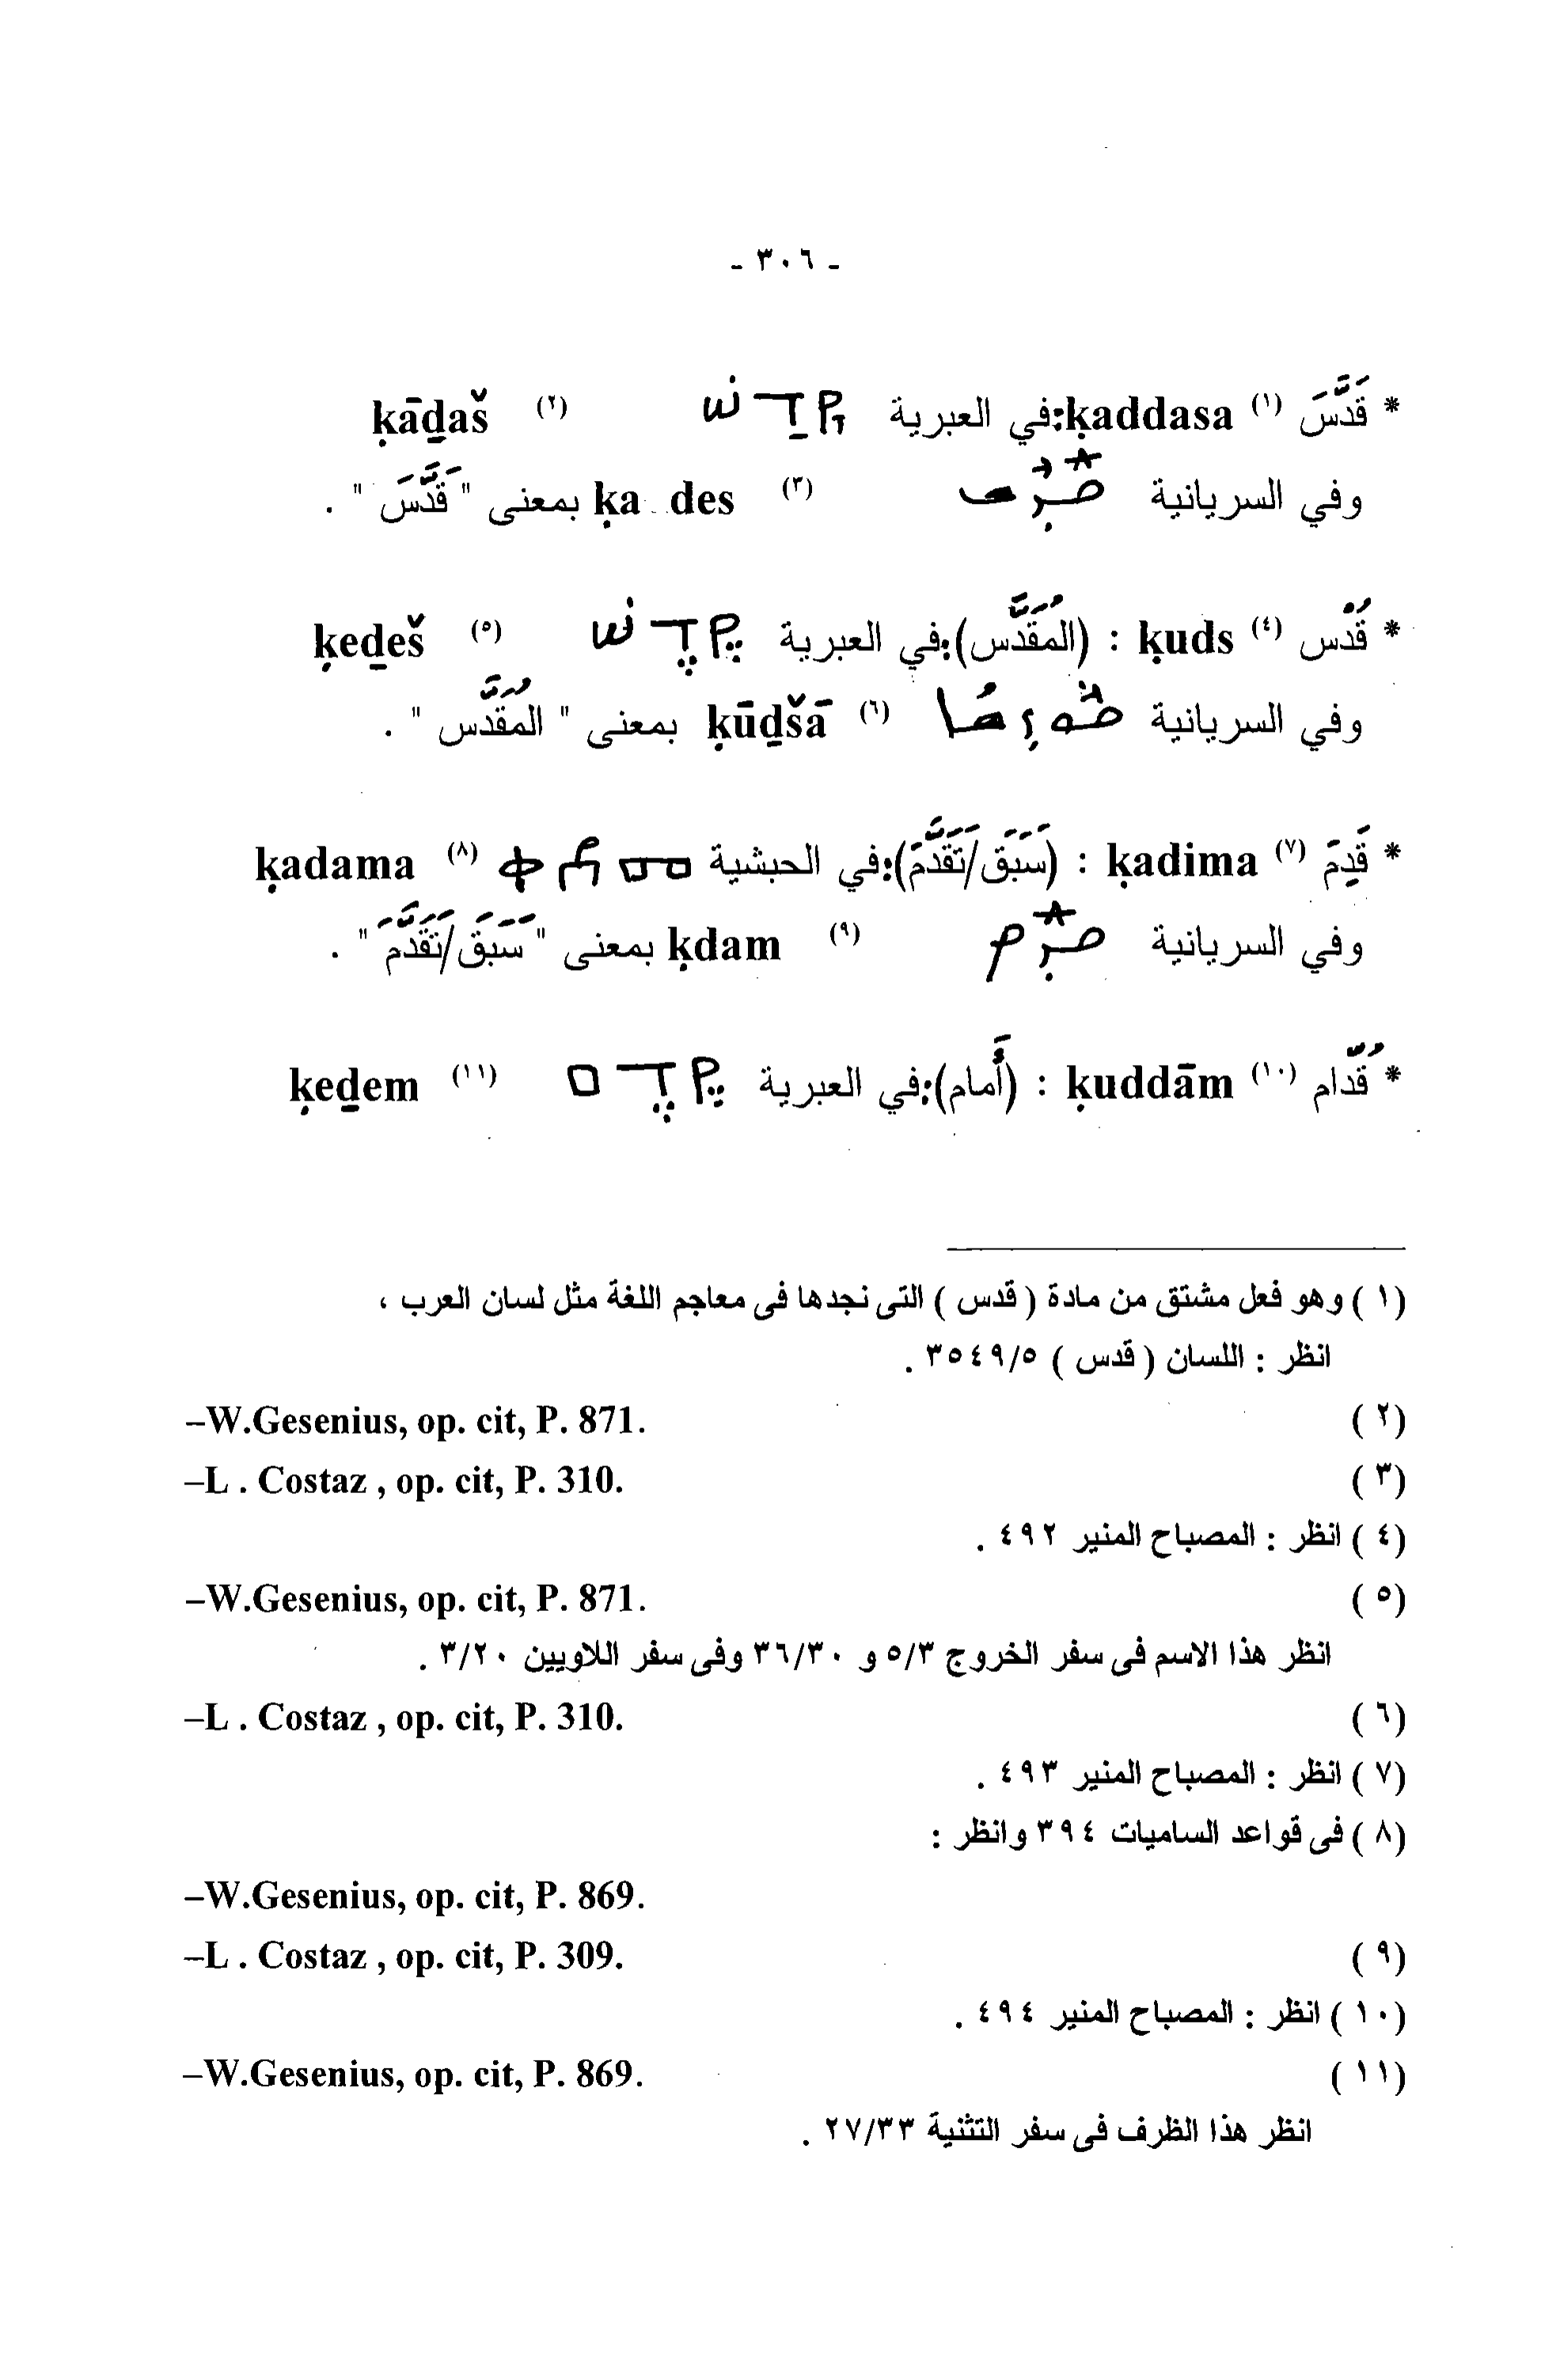 - ٣٠٦ -
* قَدَّسَ (١) ḳaddasa:في العبرية קָדַשׁ (٢) ḳāḏaš
وفي السريانية (٣) ḳa des بمعنى " قَدَّسَ " .
* قُدْس (٤) ḳuds : (المُقَدَّس):في العبرية קֶדֶשׁ (٥) ḳeḏeš
وفي السريانية (٦) ḳūḏšā بمعنى " المُقَدَّس " .
* قَدِمَ (٧) ḳadima : (سَبَقَ/تَقَدَّمَ):في الحبشية ቀደመ (٨) ḳadama
وفي السريانية (٩) ḳdam بمعنى " سَبَقَ/تَقَدَّمَ " .
* قُدّام (١٠) ḳuddām : (أَمام):في العبرية קֶדֶם (١١) ḳeḏem
(١ ) وهو فعل مشتق من مادة ( قدس ) التى نجدها فى معاجم اللغة مثل لسان العرب ،
انظر : اللسان ( قدس ) ٣٥٤٩/٥ .
(٢ ) –W.Gesenius, op. cit, P. 871.
(٣ ) –L . Costaz , op. cit, P. 310.
(٤ ) انظر : المصباح المنير ٤٩٢ .
(٥ ) –W.Gesenius, op. cit, P. 871.
انظر هذا الاسم فى سفر الخروج ٥/٣ و ٣٦/٣٠ وفى سفر اللاويين ٣/٢٠ .
(٦ ) –L . Costaz , op. cit, P. 310.
(٧ ) انظر : المصباح المنير ٤٩٣ .
(٨ ) فى قواعد الساميات ٣٩٤ وانظر :
–W.Gesenius, op. cit, P. 869.
(٩ ) –L . Costaz , op. cit, P. 309.
(١٠ ) انظر : المصباح المنير ٤٩٤ .
(١١ ) –W.Gesenius, op. cit, P. 869.
انظر هذا الظرف فى سفر التثنية ٢٧/٣٣ .